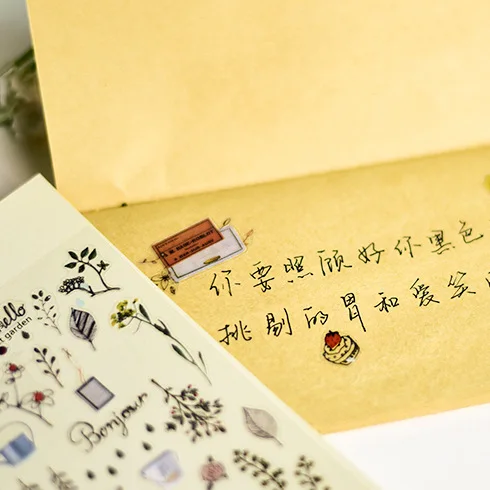 你要照顾好你黑色
挑剔的胃和爱笑
Hello
garden
Bonjour